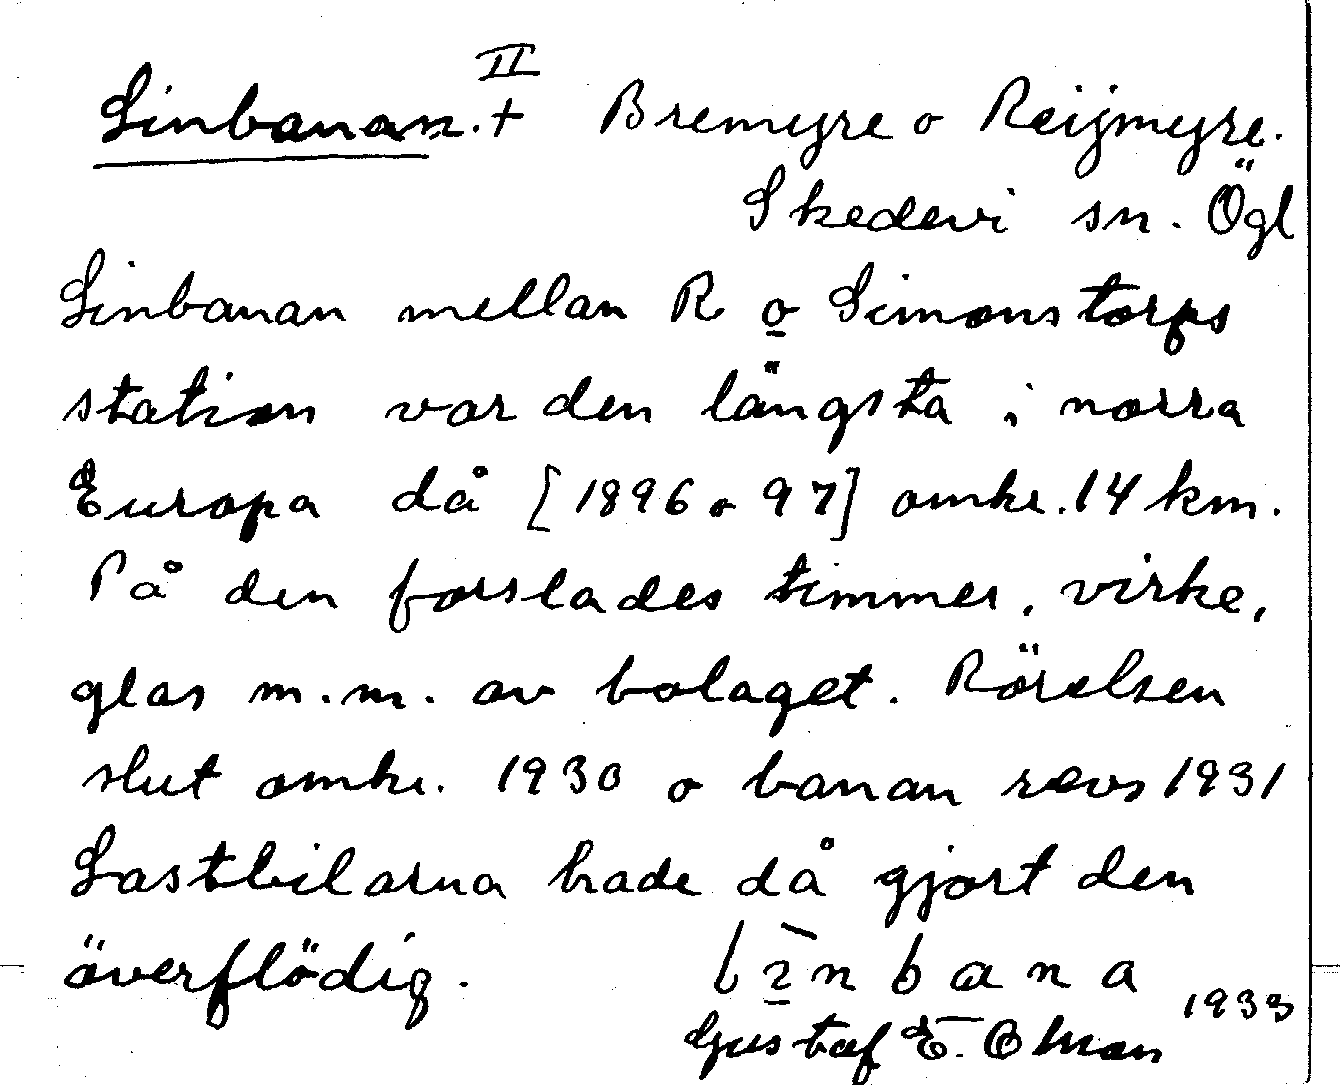 II
Linbanan.+ Bremyre o Reijmyre.
Skedevi sn. Ögl
Linbanan mellan R o Simonstorps
station var den längsta i norra
Europa då [1896 o 97] omkr. 14 km.
På den forslades timmer, virke,
glas m.m. av bolaget. Rörelsen
slut omkr. 1930 o banan revs 1931
Lastbilarna hade då gjort den
överflödig.
1933
Gustaf E. Öhman